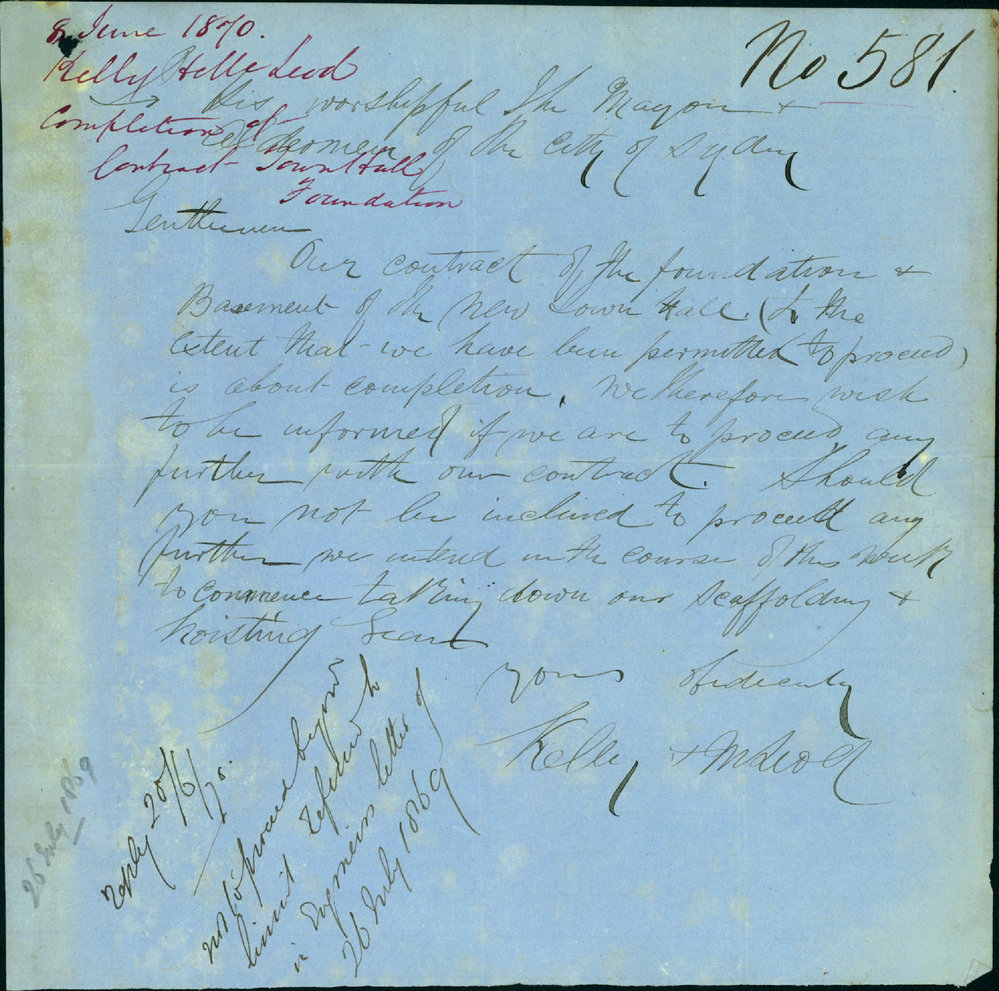 No 581
8 June 1870.
Kelly & McLeod
Completion of
Contract Town Hall
Foundation
His worshipful The Mayor &
Aldermen of the City of Sydney
Gentlemen
Our contract of the foundation &
Basement of the New Town Hall (to the
extent that we have been permitted to proceed)
is about completion. We therefore wish
to be informed if we are to proceed any
further with our contract. Should
you not be inclined to proceed any
further we intend in the course of this week
to commence taking down our scaffolding &
hoisting Gear
yours obediently
Kelly & McLeod
reply 25/6/70.
not to proceed beyond
limit referred to
in Engineers letter of
26 July 1869
26 July 1869